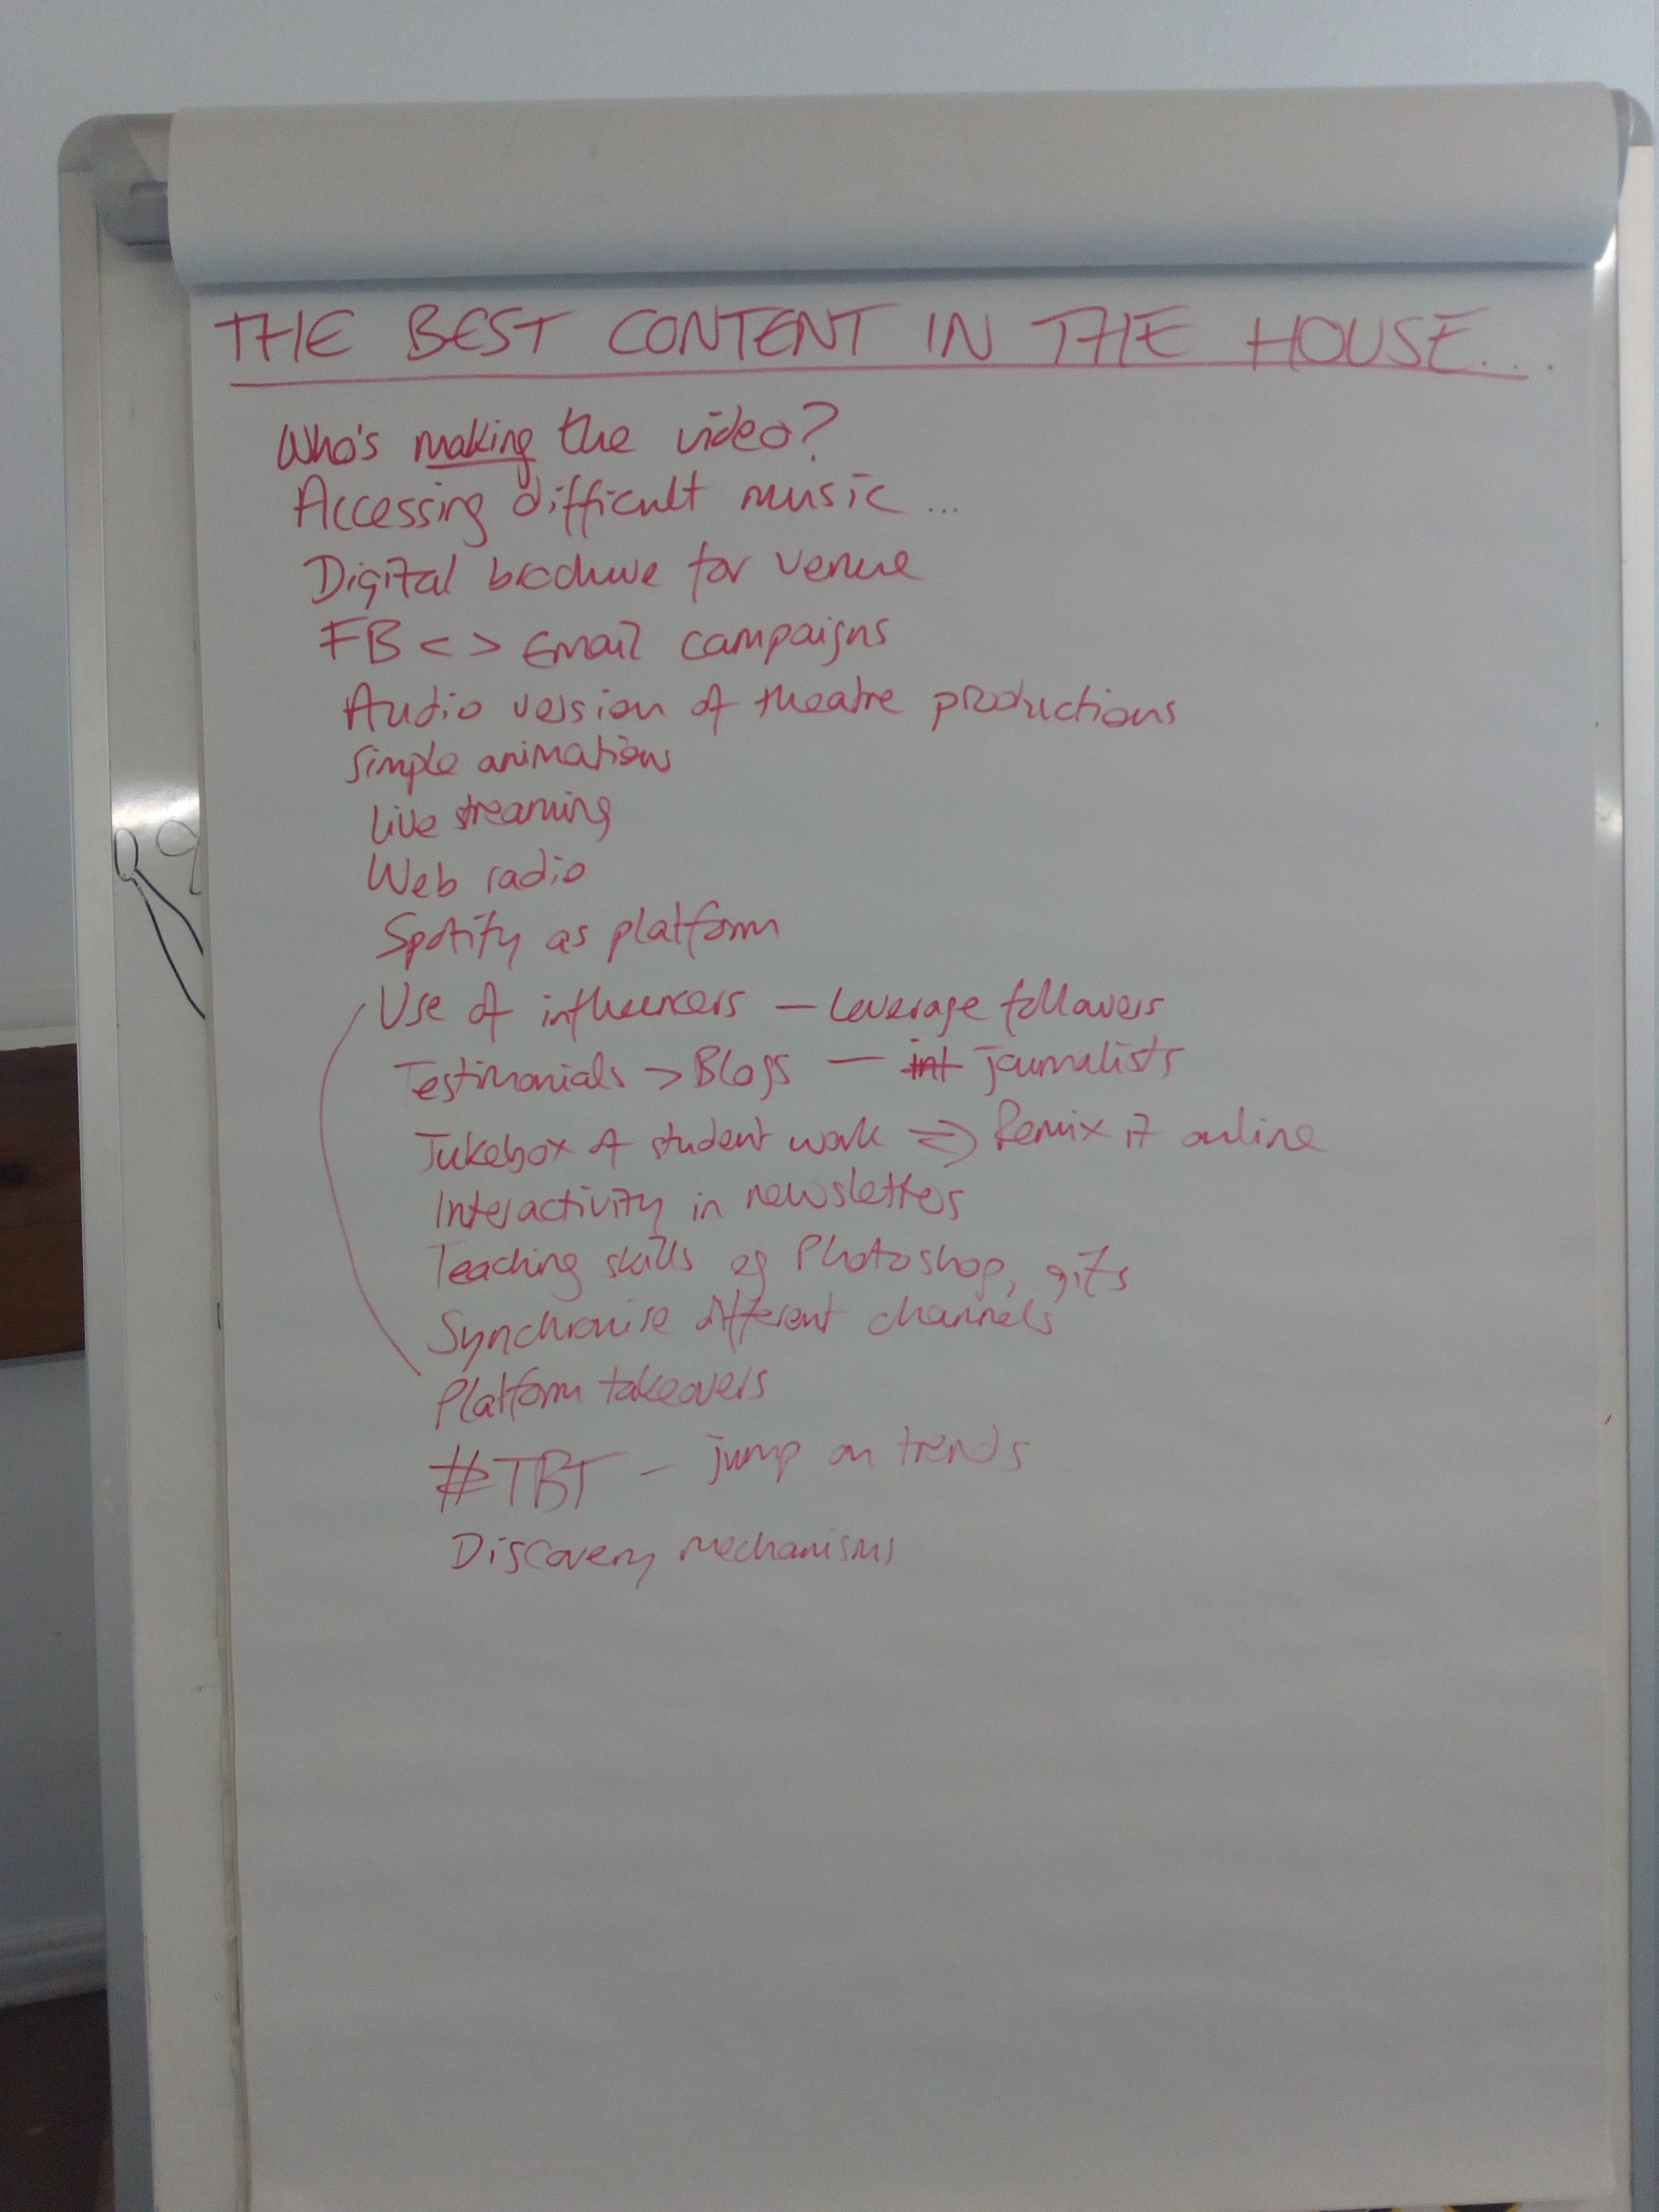 THE BEST CONTENT IN THE HOUSE...
Who's making the video?
Accessing difficult music ...
Digital brochure for venue
FB <> Email campaigns
Audio version of theatre productions
Simple animations
Live streaming
Web radio
Spotify as platform
Use of influencers — Leverage followers
Testimonials > Blogs — int journalists
Jukebox of student work => Remix it online
Interactivity in newsletters
Teaching skills eg Photoshop, gifs
Synchronise different channels
Platform takeovers
#TBT - jump on trends
Discovery mechanisms